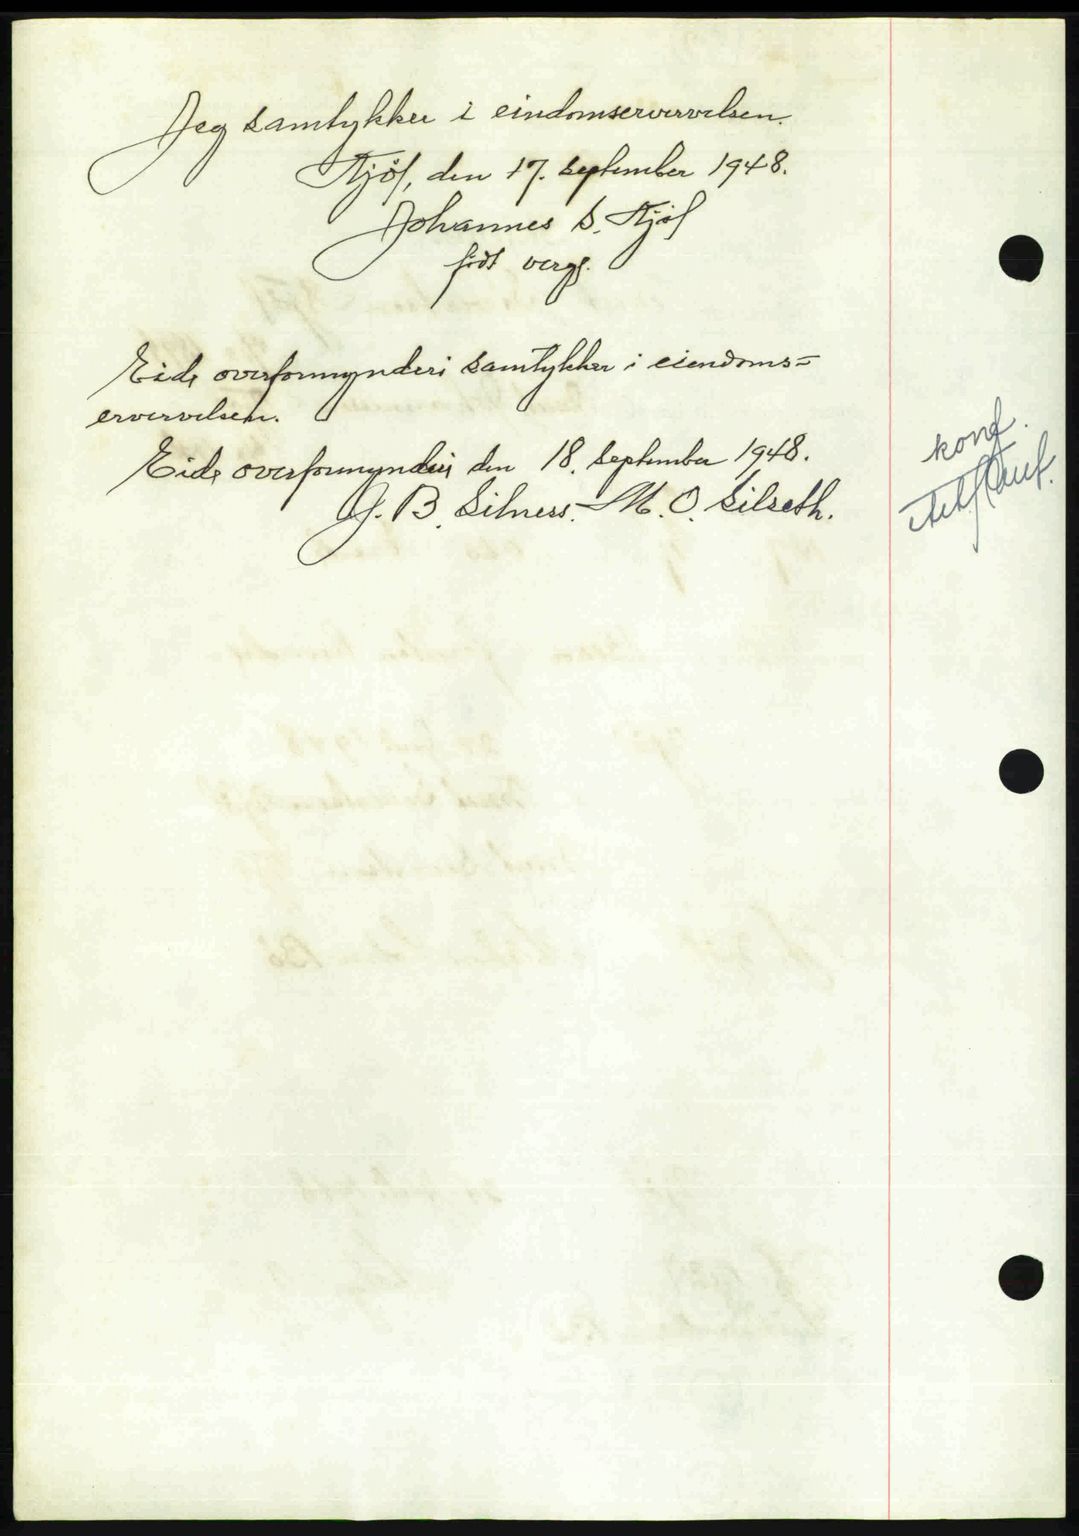 Jeg samtykker i eindomservervelsen.
Stjøf, den 17. september 1948.
Johannes S. Stjøf
født verge.
Eide overformynderi samtykker i eiendoms=
ervervelsen.
Eide overformynderi den 18. september 1948.
J. B. Silness. M. O. Silseth.
konf.